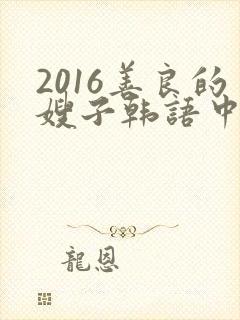 2016善良的
嫂子韩語中
龍恩